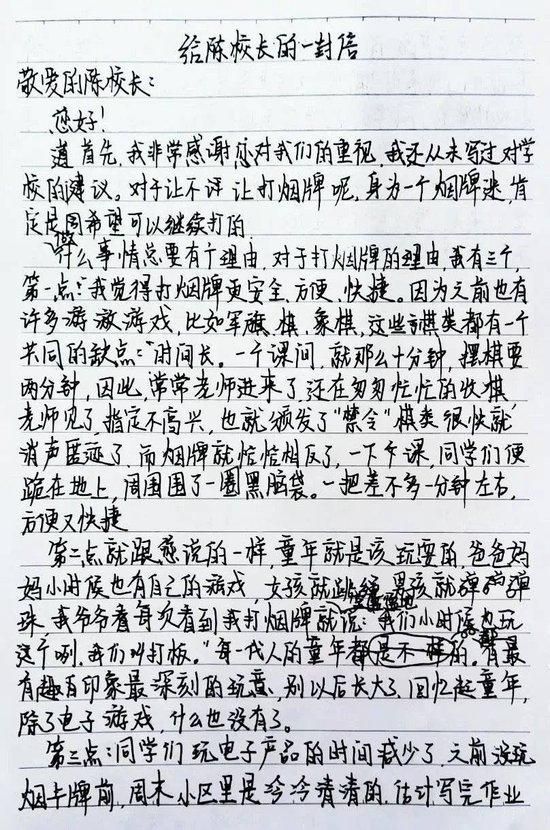 给陈校长的一封信
敬爱的陈校长：
您好！
首先，我非常感谢您对我们的重视，我还从未写过对学
校的建议。对于让不让打烟牌呢，身为一个烟牌迷，肯
定是希望可以继续打的，
什么事情总要有个理由，对于打烟牌的理由，我有三个，
第一点：我觉得打烟牌更安全、方便、快捷。因为之前也有
许多游戏，比如军旗、棋、象棋，这些棋类都有一个
共同的缺点：“时间长。一个课间，就那么十分钟，摆棋要
两分钟，因此，常常老师进来了，还在匆匆忙忙的收棋，
老师见了，指定不高兴，也就颁发了“禁令”棋类很快就
消声匿迹了，而烟牌就恰恰相反了，一下课，同学们便
跪在地上，周围围了一圈黑脑袋。一把差不多一分钟左右，
方便又快捷
第二点就跟您说的一样，童年就是该玩耍的，爸爸妈
妈小时候也有自己的游戏，女孩就跳绳，男孩就弹弹
珠，我爷爷看每次看到我打烟牌就说：我们小时候也玩
这个咧，我们叫打板。”每一代人的童年都是不一样的。有最
有趣有印象最深刻的玩意，别以后长大了，回忆起童年，
除了电子游戏，什么也没有了。
第三点：同学们玩电子产品的时间减少了，之前没玩
烟卡牌前，周末小区里是冷冷清清的，估计写完作业